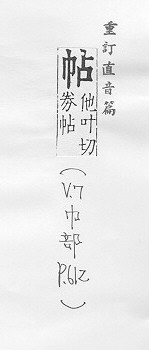 重訂直音篇
帖
他叶切
券帖
(V.7巾部P.612)